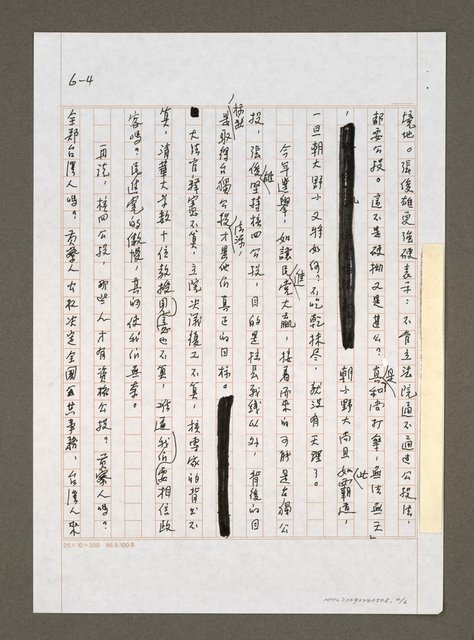 6-4
境地。張俊雄更強硬表示:不管立法院通不通過公投法,
都要公投。這不是硬拗又是甚麼?真是和尚打傘,無法無天,
朝小野大尚且如此霸道,
一旦朝大野小又將如何?不吃乾抹尽,就沒有天理了。
今年選舉,如讓民進黨大贏,接着而來的可能是台獨公
投,張俊雄堅持核四公投,目的是拉長戰線以外,背後的目
標就是取得台獨公投法源,才是他們真正的目標。
大法官釋憲不算,立院決議後又不算,核專家的背書不
算,清華大學數十位教授也不算,难道我們要相信政
客嗎?民進黨的傲慢,真的使我們無奈。
再說,核四公投,那些人才有資格公投?貢寮人嗎?
全部台灣人嗎?貢寮人有权决定全國公共事務,台灣人來
25×10=300 86.5.100本
NMTL20090240508 4/6